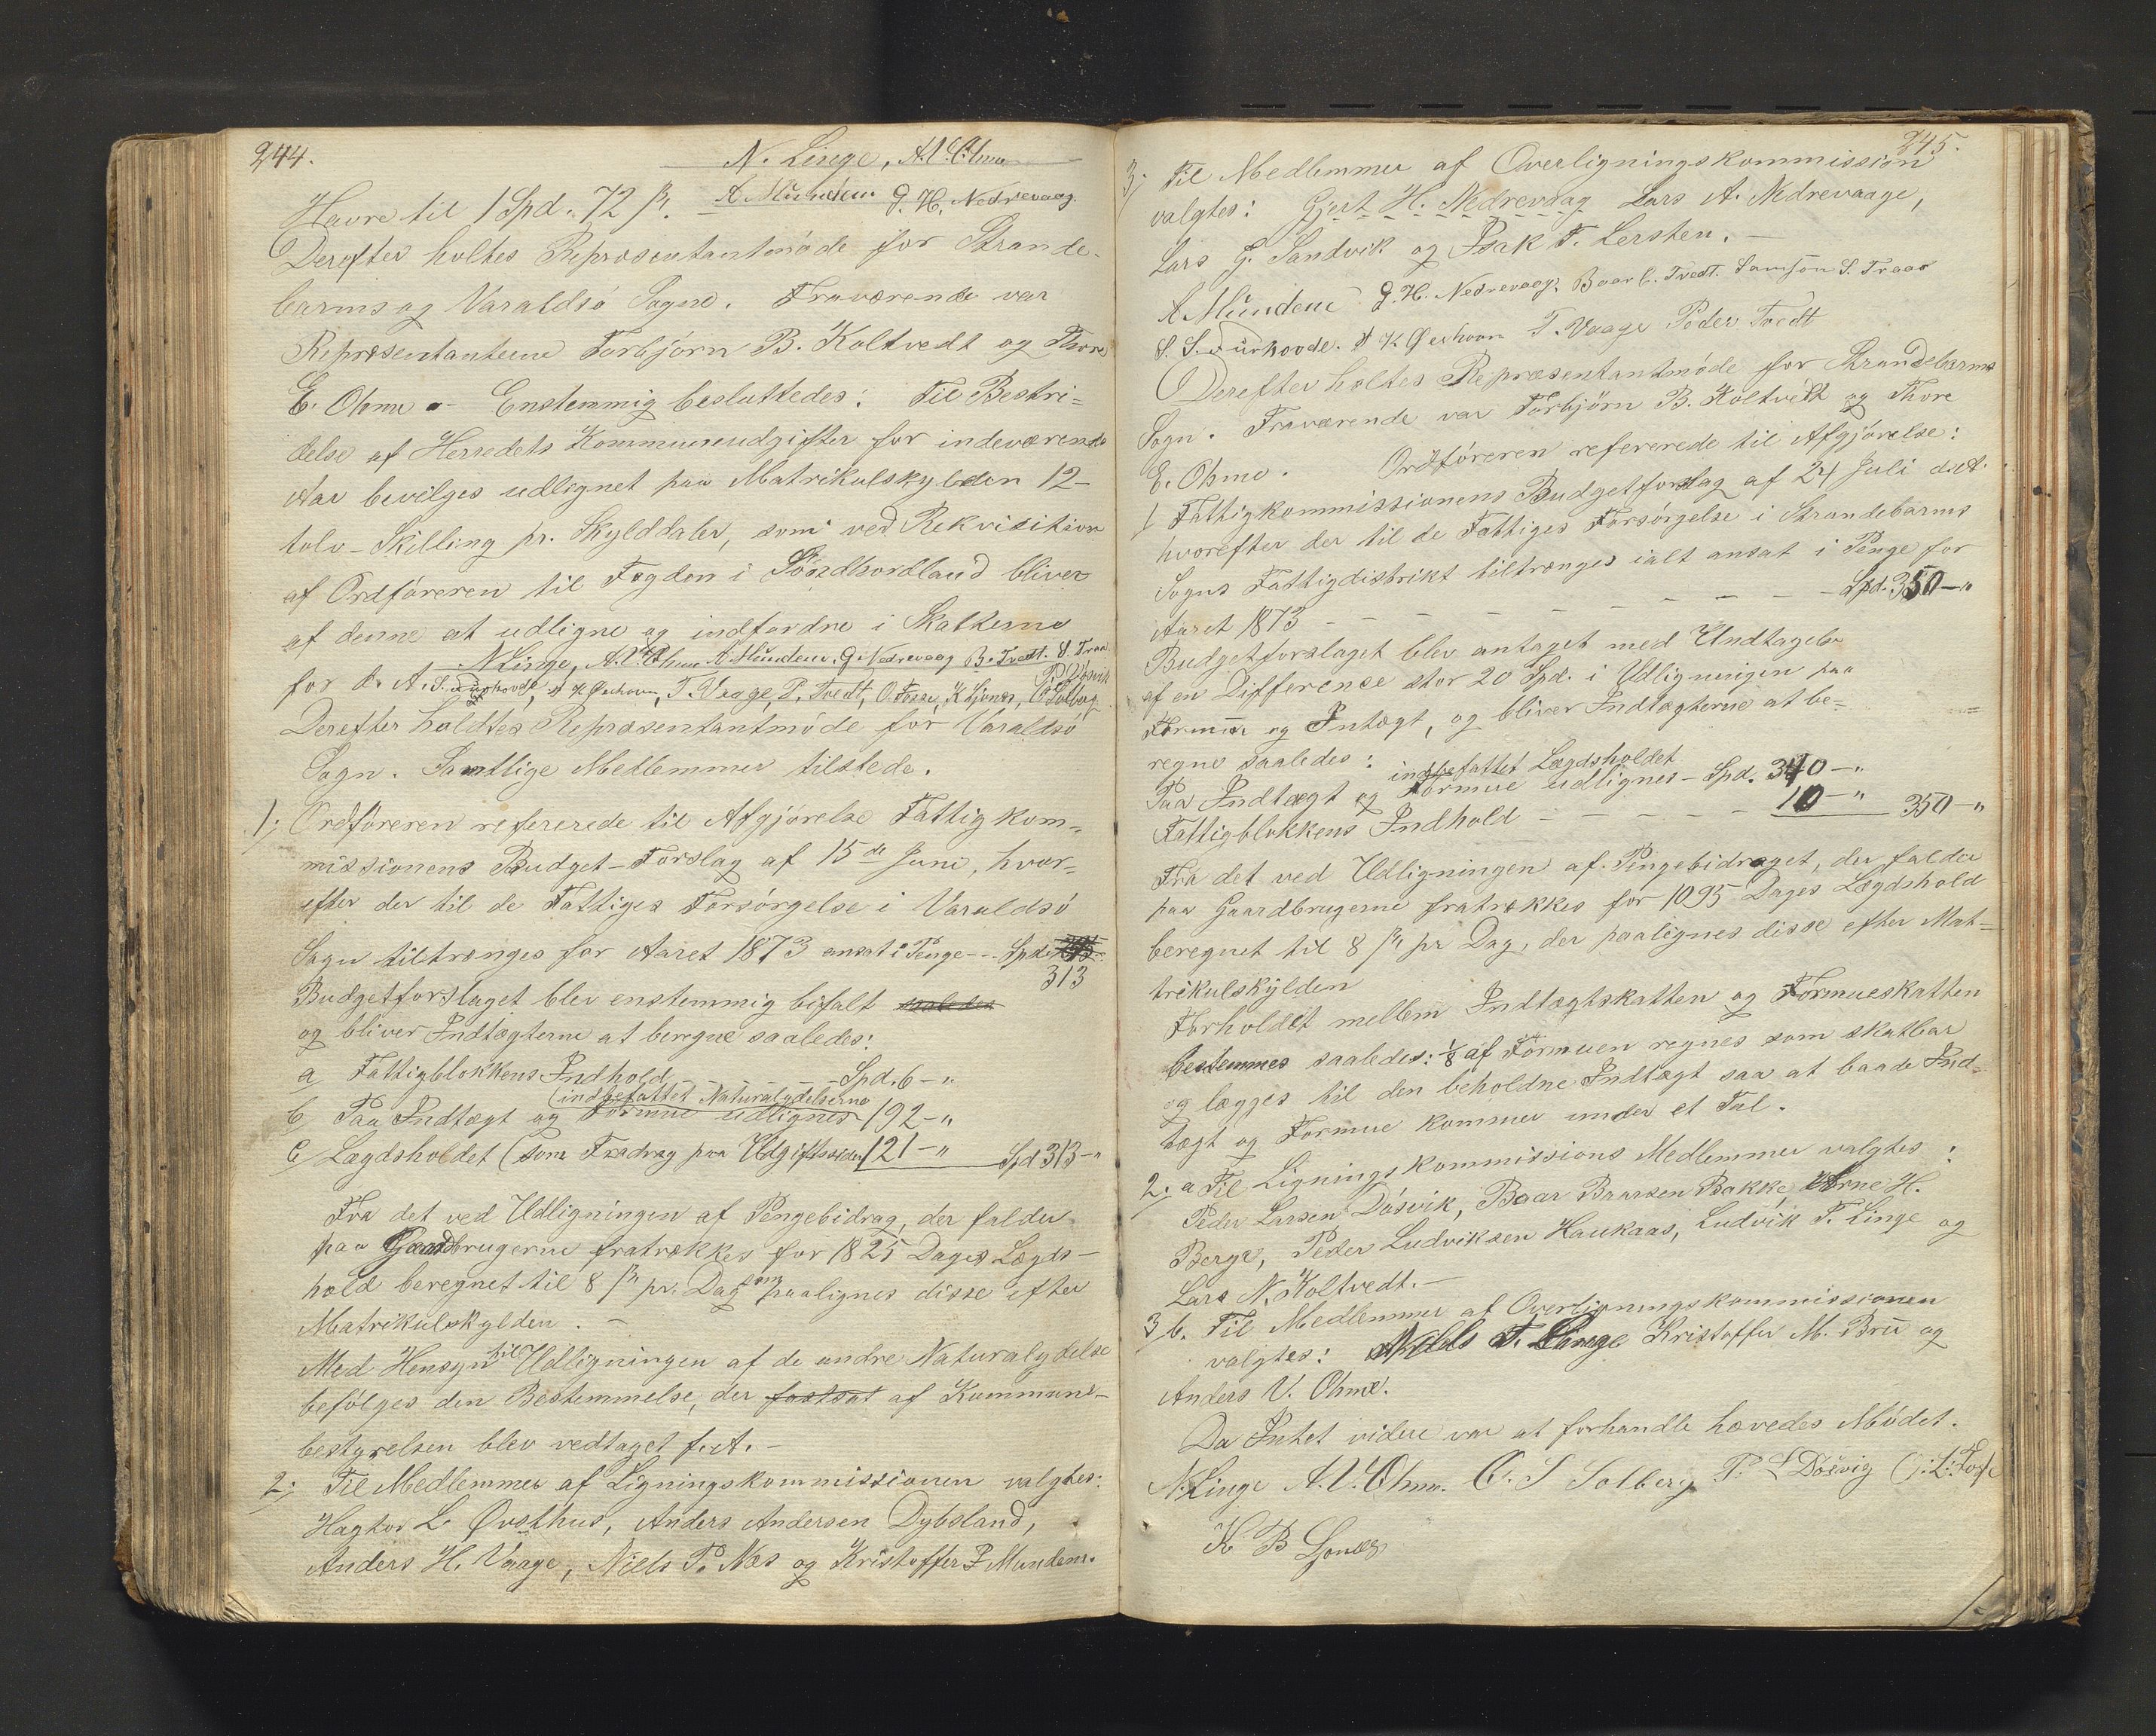 244.
N. Linge, A. V. Ohme
Havre til 1 Spd. 72 ß. A Mundem G. H. Nedrevaag.
Derefter holtes Repræsentantmöde for Strande-
barms og Varaldsö Sogne. Fraværende var
Repræsentanterne Torbjörn B. Koltvedt og Thore
E. Ohme. - Enstemmig besluttedes: Til Bestri=
delse af Herredets Kommuneudgifter for indeværende
Aar bevilges udlignet paa Matrikulskylden 12-
tolv-Skilling pr. Skylddaler, som ved Rekvisition
af Ordföreren til Fogden i Söndhordland bliver
af denne at udligne og indfordre i Skatterne
N Linge, A. V. Ohme A Mundem. G. Nedrevaag B. Tvedt. S. Traa
for d. A. T. Vaage, P. Tvedt, O. Fosse, O Solberg
Derefter holdtes Repræsentantmöde for Varaldsö
Sogn. Samtlige Medlemmer tilstede.
1; Ordföreren refererede til Afgjörelse Fattigkom-
missionens Budget-Forslag af 15de Juni, hvor-
efter der til de Fattiges Forsörgelse i Varaldsö
Sogn tiltrænges for Aaret 1873 ansat i Penge - - Spd.
313
Budgetforslaget blev enstemmig bifalt
og bliver Indtægterne at beregne saaledes:
a Fattigblokkens Indhold - - - - Spd. 6-"
(indbefattet Naturalydelserne
b, Paa Indtægt og Formue udlignes 192-"
c, Lægdsholdet (som Fradrag paa Udgiftssiden 121-" Spd 313-"
Fra det ved Udligningen af Pengebidrag, der falder
paa Gaardbrugerne fratrækkes for 1825 Dages Lægds-
hold beregnet til 8 ß pr. Dag som paalignes disse efter
Matrikulskylden. -
Med Hensyn til Udligningen af de andre Naturalydelse
befölges den Bestemmelse, der fastsat af Kommune-
bestyrelsen blev vedtaget f. A. -
2; Til Medlemmer af Ligningskommissionen valgtes:
Hagtor L. Övsthus, Anders Andersen Dybsland,
Anders H. Vaage, Niels P. Næs og Kristoffer P Mundem.
245.
3; Til Medlemmer af Overligningskommission
valgtes: Gjert H. Nedrevaag Lars A. Nedrevaage,
Lars G. Sandvik og Isak T. Lersten. -
A Mundem G. H. Nedrevaag, Baar C. Tvedt. Samson S. Traae
T. Vaage Peder Tvedt
Derefter holtes Repræsentantmöde for Strandebarms
Sogn. Fraværende var Torbjörn B. Koltvedt og Thore
E. Ohme. Ordföreren refererede til Afgjörelse:
1 Fattigkommissionens Budgetforslag af 24 Juli d. A.
hvorefter der til de Fattiges Forsörgelse i Strandebarms
Sogns Fattigdistrikt tiltrænges ialt ansat i Penge for
Aaret 1873 - - - - - - - - - Spd. 350-"
Budgetforslaget blev antaget med Undtagelse
af en Difference stor 20 Spd. i Udligningen paa
Formue og Intægt, og bliver Indtægterne at be=
regne saaledes:
indbefattet Lægdsholdet
Paa Indtægt og Formue udlignes - Spd. 340-"
Fattigblokkens Indhold - - - - - 10-" 350-"
Fra det ved Udligningen af Pengebidraget, der falder
paa Gaardbrugerne fratrækkes for 1095 Dages Lægdshold
beregnet til 8 ß pr Dag, der paalignes disse efter Mat=
trikulskylden
Forholdet mellem Indtægtskatten og Formueskatten
bestemmes saaledes: 1/8 af Formuen regnes som skatbar
og lægges til den beholdne Indtægt saa at baade Ind-
tægt og Formue kommer under et Tal.
2; a Til Ligningskommissions Medlemmer valgtes:
Peder Larsen Dösvik, Baar Baarsen Bakke, Arne H.
Berge, Peder Ludviksen Haukaas, Ludvik T. Linge og
Lars N. Koltvedt. -
3 b. Til Medlemmer af Overligningskommissionen
valgtes: Nils T. Linge Kristoffer M. Bru og
Anders V. Ohme.
Da Intet videre var at forhandle hævedes Mödet.
N. Linge A. V. Ohme. O. S Solberg P. L Dösvig O: L: Fosse
K B Gjönæs